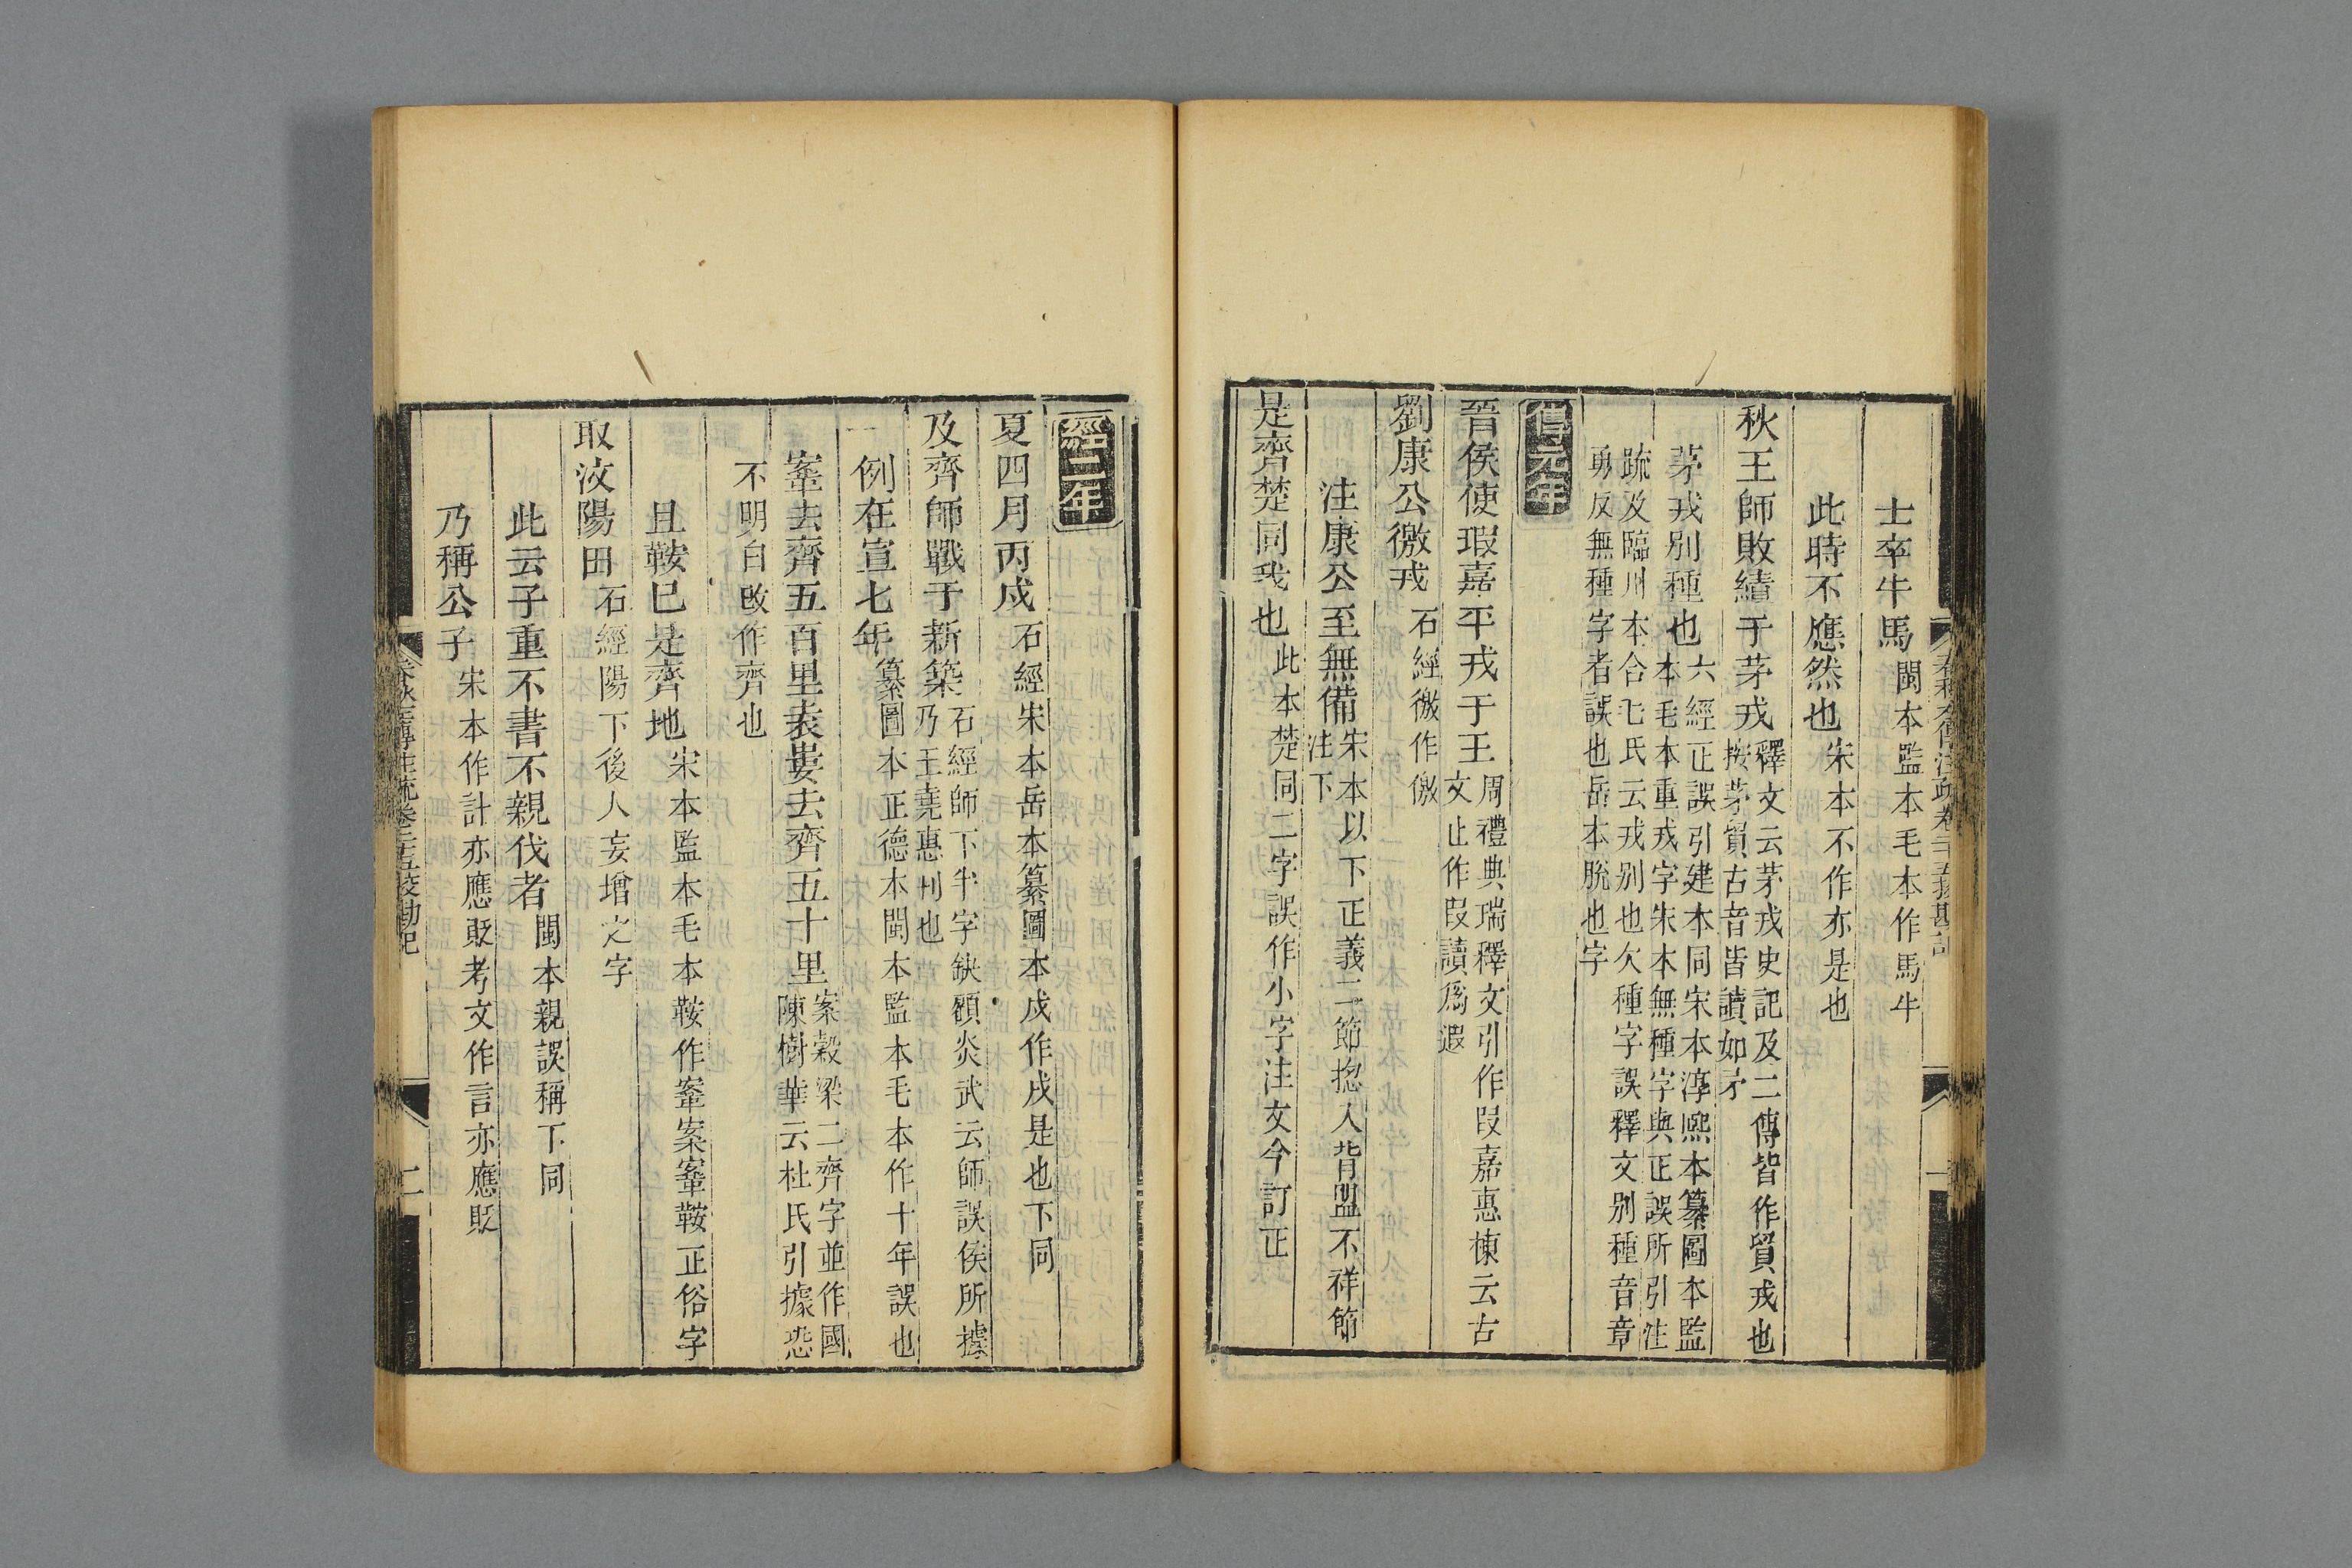 士卒牛馬閩本監本毛本作馬牛
此時不應然也宋本不作亦是也
秋王師敗績于茅戎釋文云茅戎史記及二傳皆作貿戎也
按茅貿古音皆讀如矛
茅戎別種也六經正誤引建本同宋本淳熙本纂圖本監
本毛本重戎字宋本無種字與正誤所引注
疏及臨川本合毛氏云戎別也欠種字誤釋文別種音章
勇反無種字者誤也岳本脫也字
傳元年
晉侯使瑕嘉平戎于王周禮典瑞釋文引作叚嘉惠棟云古
文止作叚讀爲遐
劉康公徼戎石經徼作儌
注康公至無備宋本以下正義二節揔入背盟不祥節
注下
是齊楚同我也此本楚同二字誤作小字注文今訂正
春秋左傳注疏卷二十五挍勘記
一
經二年
夏四月丙戍石經宋本岳本纂圖本戍作戌是也下同
及齊師戰于新築石經師下半字缺顧炎武云師誤侯所據
乃王堯惠刊也
例在宣七年纂圖本正德本閩本監本毛本作十年誤也
鞌去齊五百里袁婁去齊五十里案穀梁二齊字並作國
陳樹華云杜氏引據恐
不明白改作齊也
且鞍已是齊地宋本監本毛本鞍作鞌案鞌鞍正俗字
取汶陽田石經陽下後人妄增之字
此云子重不書不親伐者閩本親誤稱下同
乃稱公子宋本作計亦應貶考文作言亦應貶
春秋左傳注疏卷二十五挍勘記
二